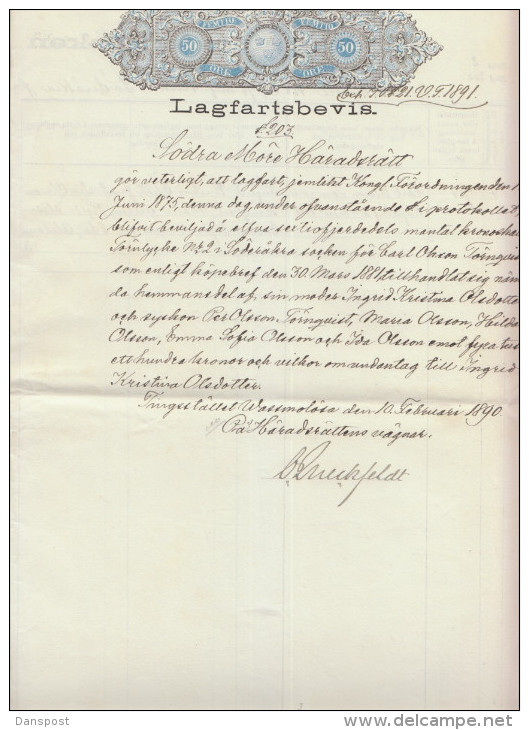 50 FEMTIO ÖRE FEMTIO 50
ÖRE
1891.
Lagfartsbevis.
§ 203.
Södra Möre Häradsrätt
gör veterligt, att lagfart, jemlikt Kongl. Förordningen den 1
Juni 1875, denna dag, under ofvanstående § i protokollet,
blifvit beviljad å elfva sextiofjerdedels mantal kronoskatte
Törnlycke No 2 i Söderåkra socken för Carl Olsson Törnqvist
som enligt köpebref den 30 Mars 1884 tillhandlat sig näm
da hemmansdel af sin moder Ingrid Kristina Olsdotter
och syskon Per Olsson Törnqvist, Maria Olsson, Hilda
Olsson, Emma Sofia Olsson och Ida Olsson emot fyra tus
ett hundra kronor och vilkor om undantag till Ingrid
Kristina Olsdotter.
Tingsstället Wassmolösa den 10 Februari 1890.
På Häradsrättens vägnar.
Danspost
www.delcampe.net